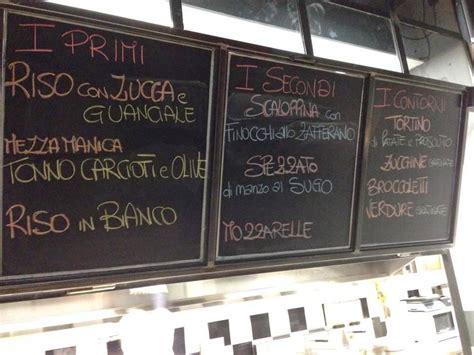 I PRIMI
RISO con ZUCCA e
GUANCIALE
MEZZA MANICA
TONNO CARCIOFI e OLIVE
RISO IN BIANCO
I SECONDI
SCALOPPINA con
FINOCCHI allo ZAFFERANO
SPEZZATO
di manzo al SUGO
MOZZARELLE
I CONTORNI
TORTINO
di PATATE e PROSCIUTTO
ZUCCHINE
BROCCOLETTI
VERDURE